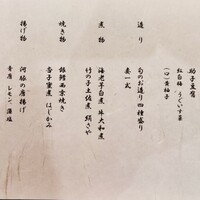 助子豆腐
紅白輪 うぐいす菜
(口)黄柚子
造り
旬のお造り四種盛り
妻一式
煮物
海老芋白煮 牛大和煮
竹の子土佐煮 絹さや
焼き物
銀鱈西京焼き
杏子蜜煮 はじかみ
揚げ物
河豚の唐揚げ
青唐 レモン 藻塩